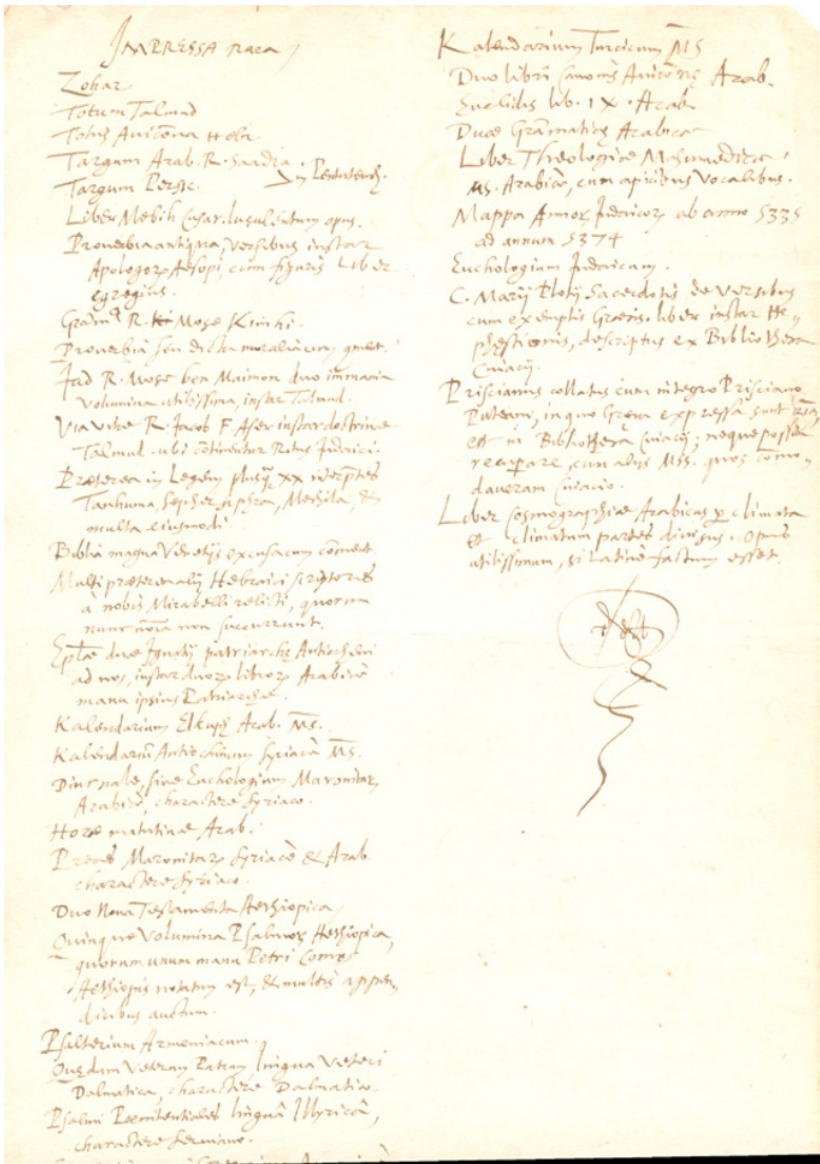 IMPRESSA rara
Zohar
Totum Talmud
Totus Auicēna Hebr.
Targum Arab. R. Saadia
Targum Persic. in Pentateuch.
Liber Mebih Cusar. luculentum opus.
Prouerbia antiqua, versibus instar
Apologorꝝ Aesopi, cum figuris Liber
egregius.
R. Mose Kimhi.
Prouerbia seu dicta moralia cum
Jad R. Mose ben Maimon duo immania
volumina utilissima, instar Talmud.
Via vitae R. Jacob F. Aser instar doctrinae
Talmud. ubi cōtinentur Ritus Judaici.
Praeterea in Legem plusq̄ XX interp̄tes
Tanhuma, Sepher siphra, Mechilta, &
multa eiusmodi.
Biblia magna Venetijs excusa cum cōment.
Multi praeterea alij Hebraici scriptores
à nobis Mirabelli relicti, quorum
nunc nōīa non succurrunt.
Eplae duae Ignatij patriarchę Antiocheni
ad nos, instar duorꝝ librorꝝ Arabicè
manu ipsius Patriarchae.
Kalendarium Elkuph Arab. MS.
Kalendariū Antiochenum Syriacè MS.
Diurnale, siue Euchologium Maronitarꝝ
Arabicè, charactere Syriaco.
Horae matutinae Arab.
Preces Maronitarꝝ Syriacè & Arab.
charactere Syriaco.
Duo Noua Testamenta Aethiopica
Quinque volumina Psalmorꝝ Aethiopica,
quorum unum manu Petri
Aethiopis notatum est, & multis appen,
dicibus auctum.
Psalterium Armeniacum.
Quędam Veterum Patrum lingua Veteri
Dalmatica, charactere Dalmatico.
Psalmi Poenitentiales linguâ Illyricâ,
charactere Seruiano.
Kalendarium Turcicum MS
Duo libri Canonis Auicēnę Arab.
Euclidis lib. IX. Arab.
Duae Grāmaticę Arabicae
Liber Theologiae Mahumedicae
MS. Arabicè, cum apicibus vocalibus.
Mappa Annorꝝ Judaicorꝝ ab anno 5335
ad annum 5374
Euchologium Judaicum.
C. Marij Plotij Sacerdotis de Versibus
cum exemplis Graecis. liber instar He,
phęstionis, descriptus ex Bibliotheca
Cuiacij.
Priscianus collatus cum integro Prisciano
Puteani, in quo Gręca expressa sunt
est in Bibliotheca Cuiacij; neque possum
recuperare, cum alijs Mss. quos cōmo,
daueram Cuiacio.
Liber Cosmographiae Arabicus ꝑ climata
et climatum partes diuisus. Opus
utilissimum, si Latinè factum esset.